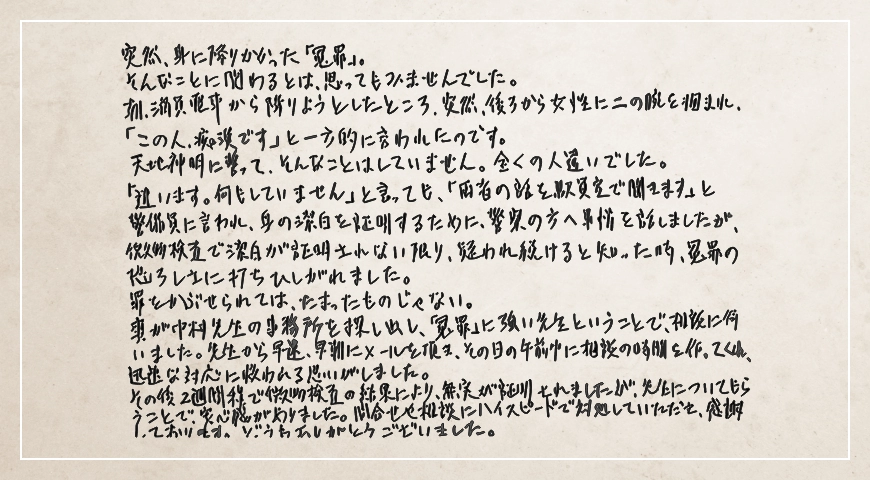 突然、身に降りかかった「冤罪」。
そんなことに関わるとは、思ってもみませんでした。
朝、満員電車から降りようとしたところ、突然、後ろから女性に二の腕を掴まれ、
「この人、痴漢です」と一方的に言われたのです。
天地神明に誓って、そんなことはしていません。全くの人違いでした。
「違います。何もしていません」と言っても、「両者の話を駅員室で聞きます」と
警備員に言われ、身の潔白を証明するために、警察の方へ事情を話しましたが、
微物検査で潔白が証明されない限り、疑われ続けると知った時、冤罪の
恐ろしさに打ちひしがれました。
罪をかぶせられては、たまったものじゃない。
妻が中村先生の事務所を探し出し、「冤罪」に強い先生ということで、相談に伺
いました。先生から早速、早朝にメールを頂き、その日の午前中に相談の時間を作ってくれ、
迅速な対応に救われる思いがしました。
その後2週間程で微物検査の結果により、無実が証明されましたが、先生についてもら
うことで、安心感がありました。問合せや相談にハイスピードで対処していただき、感謝
しております。どうもありがとうございました。